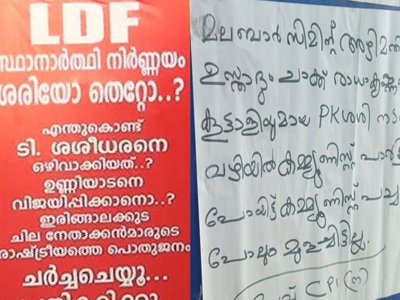 LDF
സ്ഥാനാർത്ഥി നിർണ്ണയം
ശരിയോ തെറ്റോ..?
എന്തുകൊണ്ട്
ടി. ശശീധരനെ
ഒഴിവാക്കിയത്..?
ഉണ്ണിയാടനെ
വിജയിപ്പിക്കാനൊ..?
ഇരിങ്ങാലക്കുട
ചില നേതാക്കൻമാരുടെ
രാഷ്ട്രീയത്തെ പൊതുജനം
ചർച്ചചെയ്യൂ...
മലബാർ സിമിന്റ് അഴിമതി
ഉസ്താദും ചാക്ക് രാധാകൃഷ്ണ
കൂട്ടാളിയുമായ PK ശശി നട
വഴിയിൽ കമ്മ്യൂണിസ്റ്റ് പാർട്ടി
പോയിട്ട് കമ്മ്യൂണിസ്റ്റ് പച്ച
പോലും മുളച്ചിട്ടില്ല.
CPI (